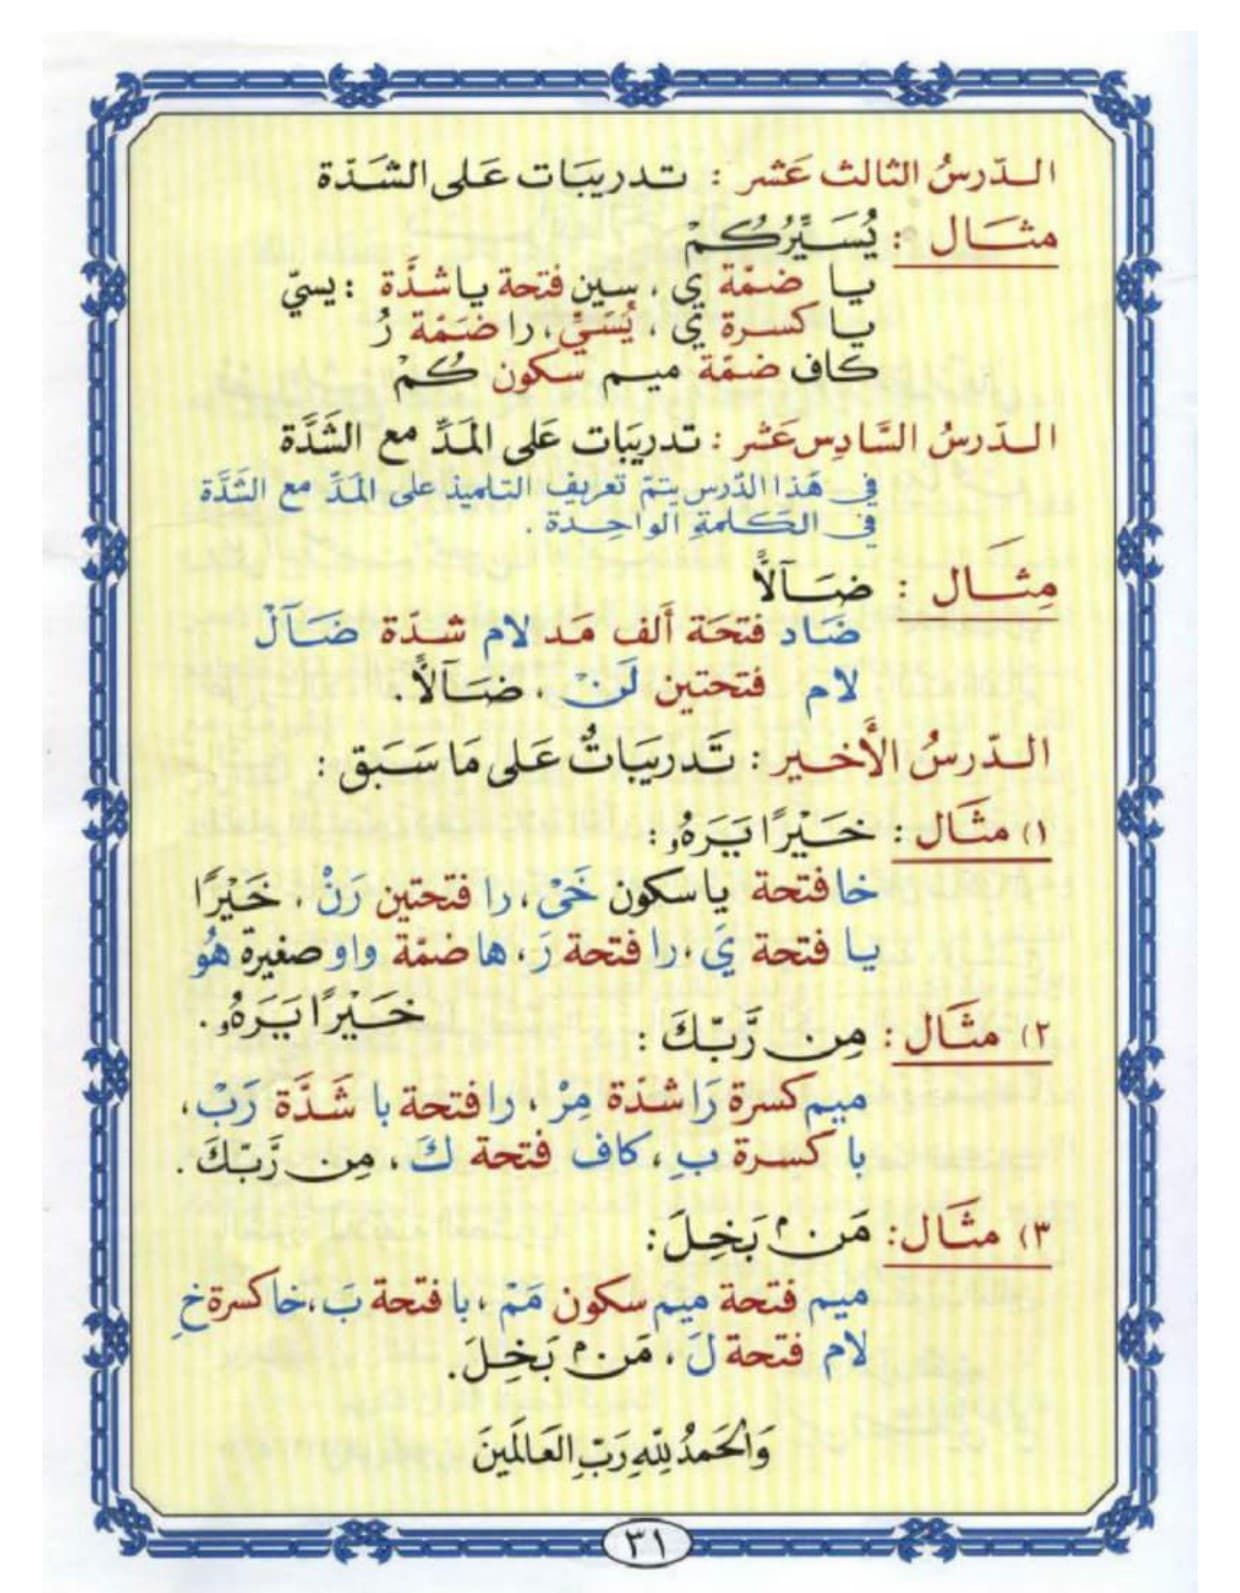 الـدّرسُ الثالث عَشر : تـدريبَات عَلى الشَدّة
مثـَال : يُسَـيِّرُكُمْ
يـا ضمّة يُ ، سين فتحة يا شدَّة : يسيّ
يـا كسـرة يِ ، يُسَيِّ، را ضمَّة رُ
كاف ضمّة ميـم سكون كُمْ
الـدّرسُ السَّادِس عَشر : تدريَبات عَلى المَدِّ مع الشَدَّة
في هَذا الدّرس يتمّ تعريف التلاميذ على المَدِّ مع الشَدَّة
في الكَلمةِ الواحِدة .
مِثـَـال : ضَـآلًّا
ضَاد فتحَة ألف مَد لام شدّة ضَـآلْ
لام فتحتين لَنْ ، ضَـآلًّا .
الـدّرسُ الأَخـير : تَدريَباتٌ عَلى مَا سَـبَق :
١) مثَال : خَـيْرًا يَـرَهُۥ :
خا فتحة يا سكون خَيْ ، را فتحتين رَنْ ، خَـيْرًا
يـا فتحة يَ ، را فتحة رَ ، ها ضمّة واو صغيرة هُو
خَـيْرًا يَـرَهُۥ .
٢) مثَال : مِن رَّبِّـكَ :
ميم كسرة رَا شدّة مِرْ ، را فتحة با شَدَّة رَبْ ،
با كسـرة بِ ، كاف فتحة كَ ، مِن رَّبِّـكَ .
٣) مثَال : مَنۢ بَخِلَ :
ميم فتحة ميم سكون مَمْ ، با فتحة بَ ، خا كسرة خِ
لام فتحة لَ ، مَنۢ بَخِلَ .
وَالحَمدُ لِلّهِ رَبِّ العَالَمِينَ
٣١